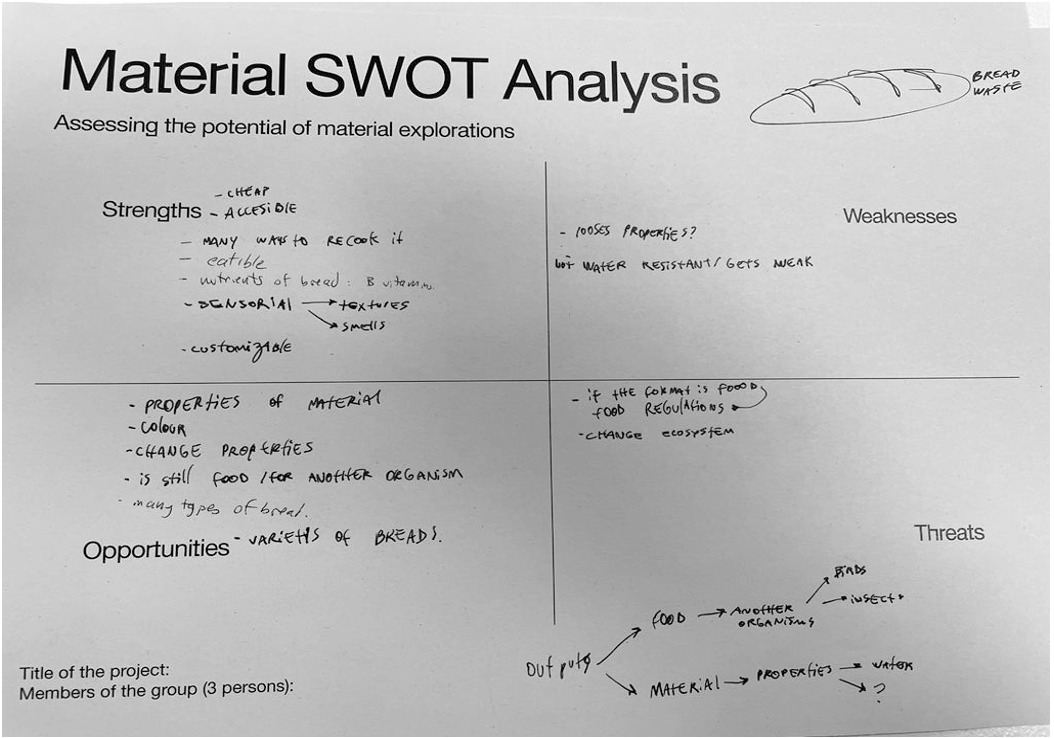 Material SWOT Analysis
BREAD
WASTE
Assessing the potential of material explorations
Strengths
- CHEAP
- ACCESIBLE
- MANY WAYS TO RECOOK it
- eatible
- nutrients of bread: B vitamin.
- SENSORIAL → textures
→ smells
- customizable
Weaknesses
- looses PROPERTIES?
not WATER RESISTANT/ GETS WEAK
- PROPERTIES OF MATERIAL
- COLOUR
- CHANGE PROPERTIES
- is still FOOD / FOR ANOTHER ORGANISM
- many types of bread.
Opportunities
- VARIETIS OF BREADS.
- if THE FORMAT is FOOOD
FOOD REGULATIONS
- CHANGE ecosystem
Threats
Outputs
→ FOOD → ANOTHER
ORGANISMS
→ BIRDS
→ INSECTS
→ MATERIAL → PROPERTIES → WATER
→ ?
Title of the project:
Members of the group (3 persons):